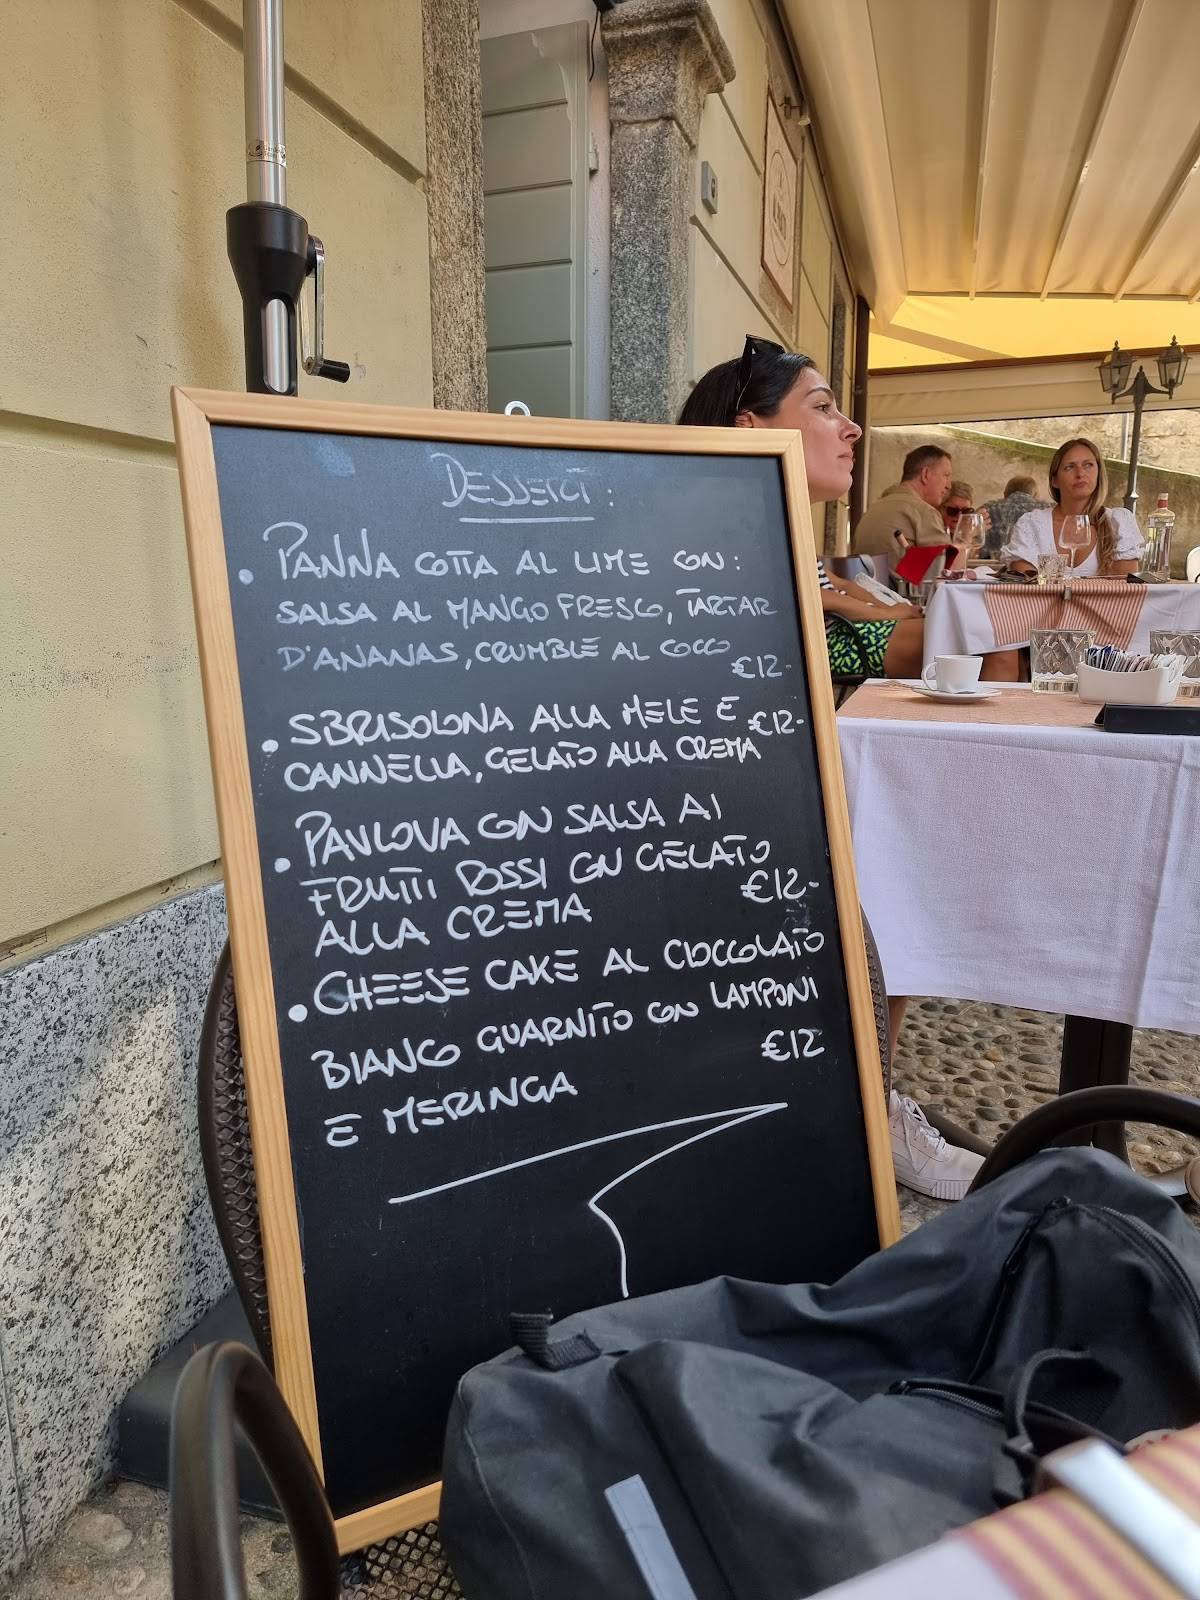 DESSERT :
• PANNA COTTA AL LIME CON :
SALSA AL MANGO FRESCO, TARTAR
D'ANANAS, CRUMBLE AL COCCO
€12-
• SBRISOLONA ALLA MELE E €12-
CANNELLA, GELATO ALLA CREMA
• PAVLOVA CON SALSA AI
FRUTTI ROSSI CON GELATO
ALLA CREMA €12-
• CHEESE CAKE AL CIOCCOLATO
BIANCO GUARNITO CON LAMPONI
E MERINGA €12